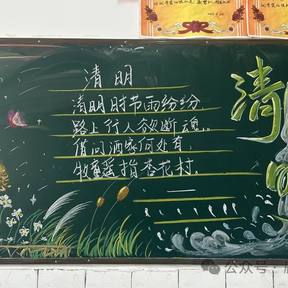 清明
清明时节雨纷纷
路上行人欲断魂
借问酒家何处有
牧童遥指杏花村
清明
公众号